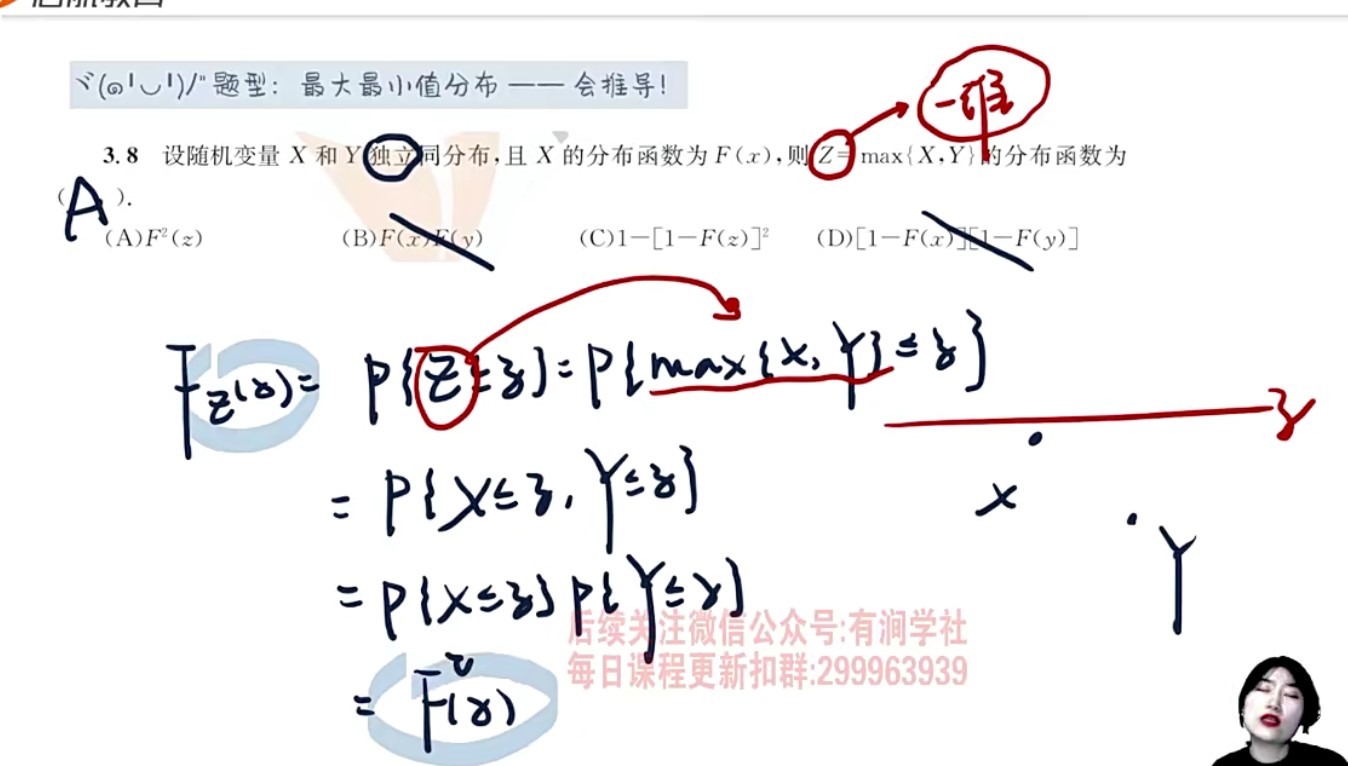 启航教育
ヾ(๑╹◡╹)ﾉ" 题型：最大最小值分布 —— 会推导！
一维
3.8 设随机变量 X 和 Y 独立同分布,且 X 的分布函数为 F(x),则 Z=max{X,Y}的分布函数为
( A ).
(A)F²(z) (B)F(x)F(y) (C)1-[1-F(z)]² (D)[1-F(x)][1-F(y)]
F_Z(z)= P{Z≤z}=P{max{X,Y}≤z}
z
= P{X≤z, Y≤z}
X
Y
= P{X≤z}P{Y≤z}
后续关注微信公众号:有涧学社
每日课程更新扣群:299963939
= F²(z)